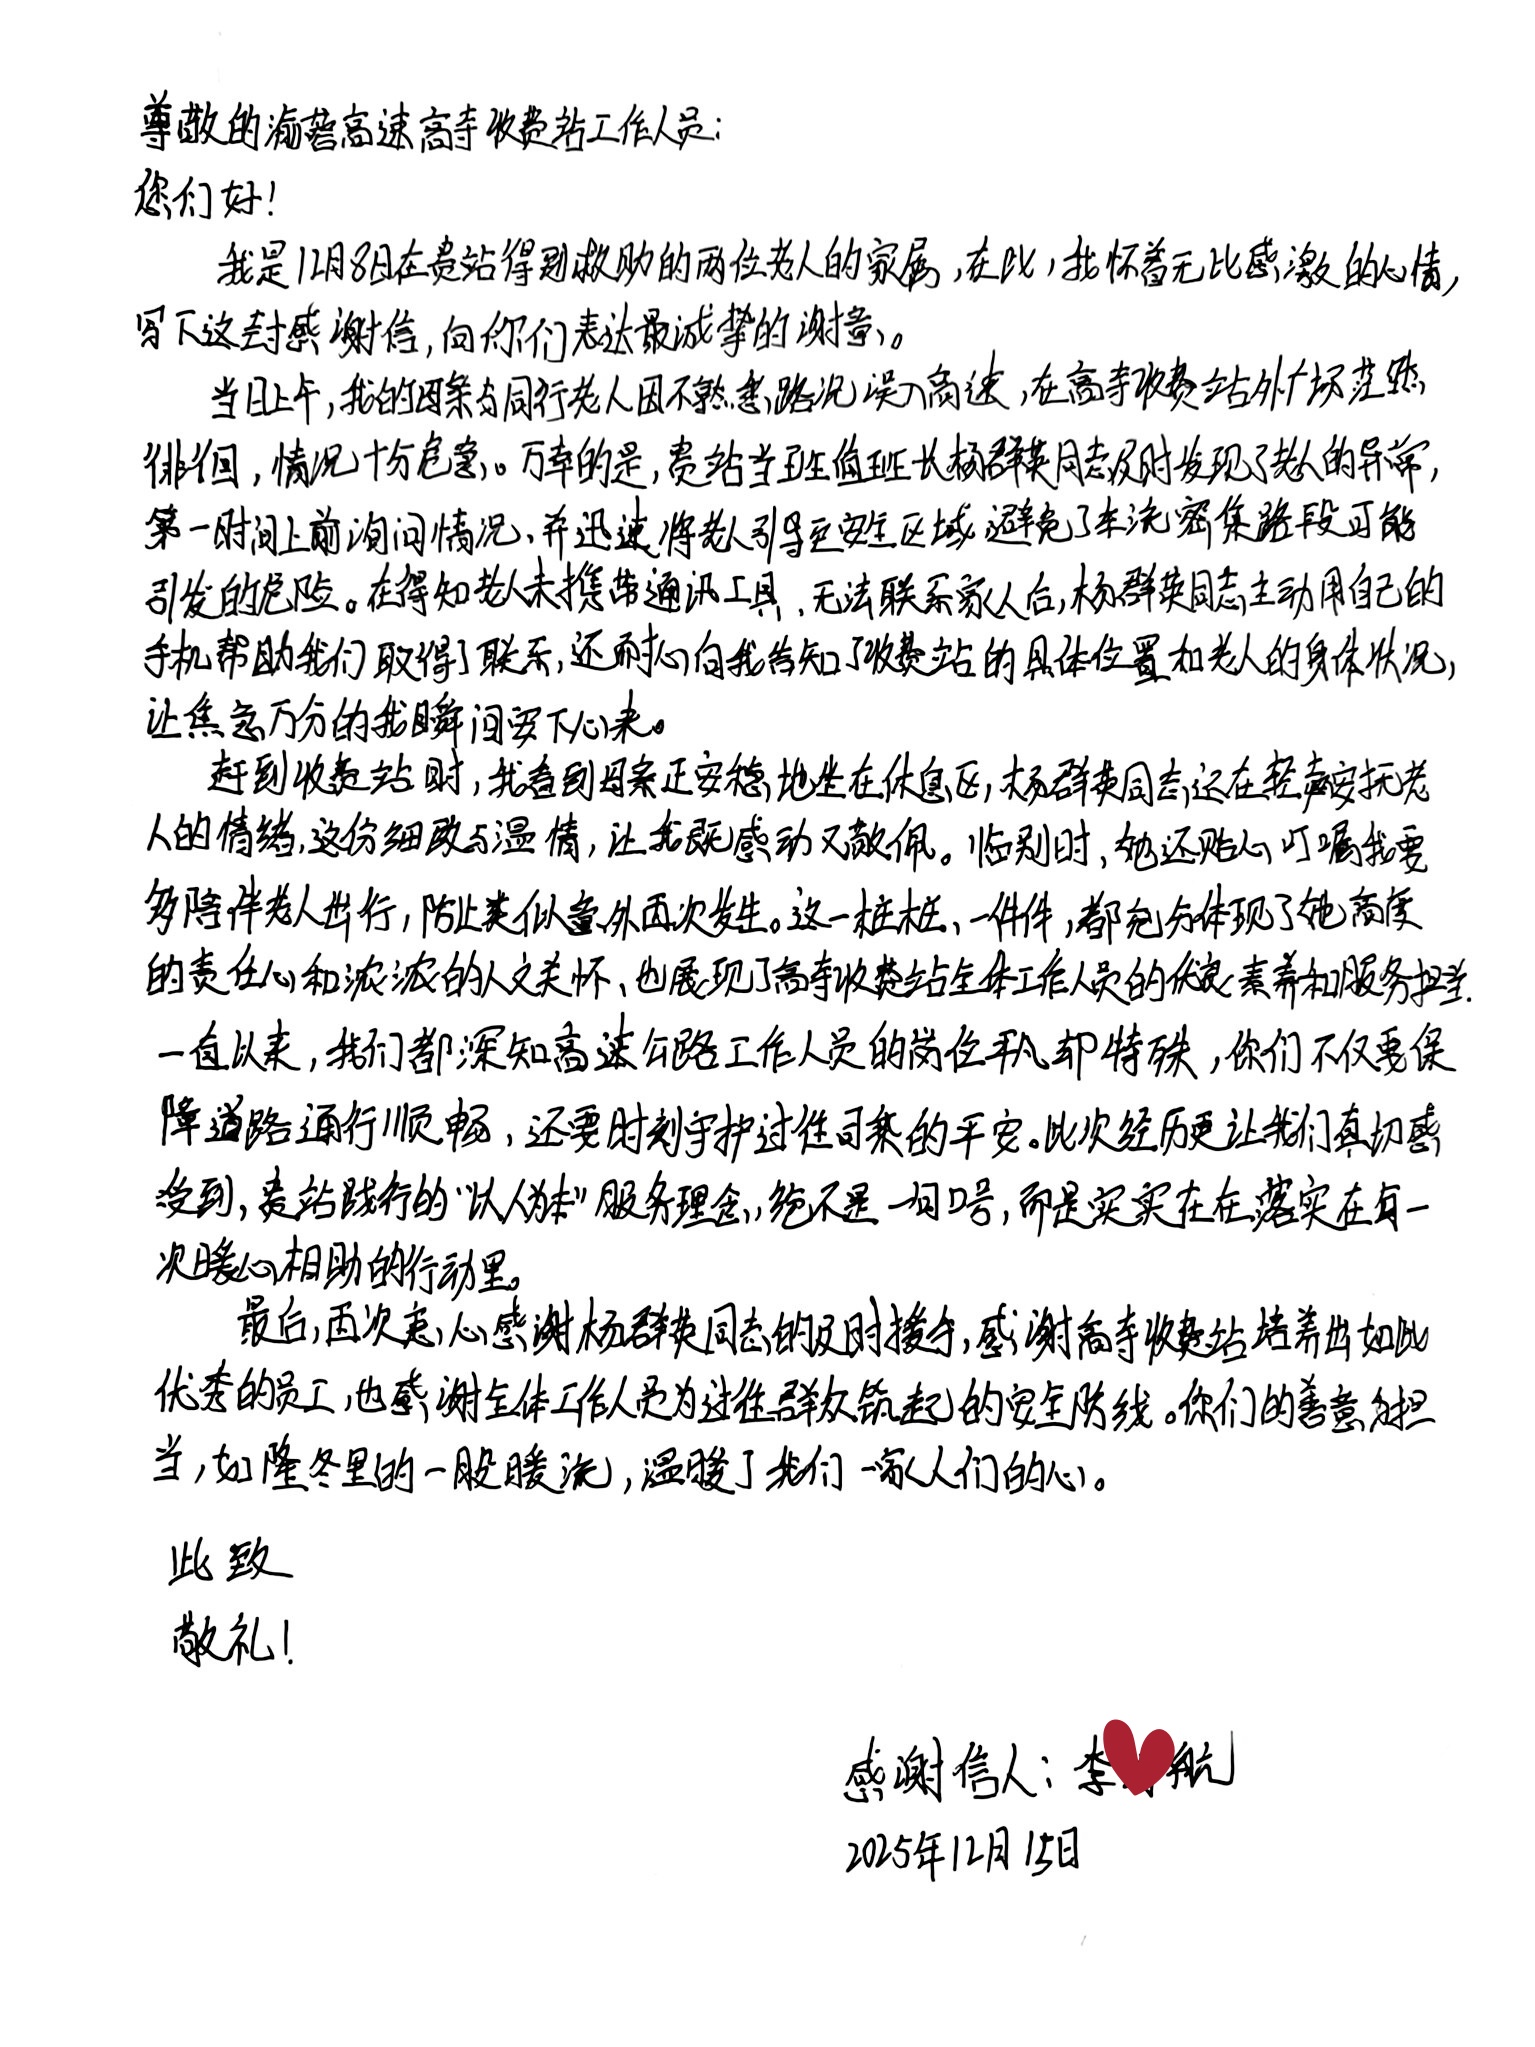 尊敬的渝蓉高速高寺收费站工作人员：
您们好！
我是12月8日在贵站得到救助的两位老人的家属，在此，我怀着无比感激的心情，
写下这封感谢信，向你们表达最诚挚的谢意。
当日上午，我的母亲与同行老人因不熟悉路况误入高速，在高寺收费站外广场茫然
徘徊，情况十分危急。万幸的是，贵站当班值班长杨群英同志及时发现了老人的异常，
第一时间上前询问情况、并迅速将老人引导至安全区域避免了车流密集路段可能
引发的危险。在得知老人未携带通讯工具、无法联系家人后，杨群英同志主动用自己的
手机帮助我们取得了联系，还耐心向我告知了收费站的具体位置和老人的身体状况，
让焦急万分的我瞬间安下心来。
赶到收费站时，我看到母亲正安稳地坐在休息区，杨群英同志还在轻声安抚老
人的情绪，这份细致与温情，让我既感动又敬佩。临别时、她还贴心叮嘱我要
多陪伴老人出行，防止类似意外再次发生。这一桩桩、一件件，都充分体现了她高度
的责任心和浓浓的人文关怀、也展现了高寺收费站全体工作人员的优良素养和服务担当.
一直以来，我们都深知高速公路工作人员的岗位平凡却特殊，你们不仅要保
障道路通行顺畅，还要时刻守护过往司乘的平安。此次经历更让我们真切感
受到，贵站践行的“以人为本”服务理念，绝不是一句口号，而是实实在在落实在每一
次暖心相助的行动里。
最后，再次衷心感谢杨群英同志的及时援手，感谢高寺收费站培养出如此
优秀的员工，也感谢全体工作人员为过往群众筑起的安全防线。你们的善意与担
当，如隆冬里的一股暖流，温暖了我们一家人们的心。
此致
敬礼！
感谢信人：李 航
2025年12月15日